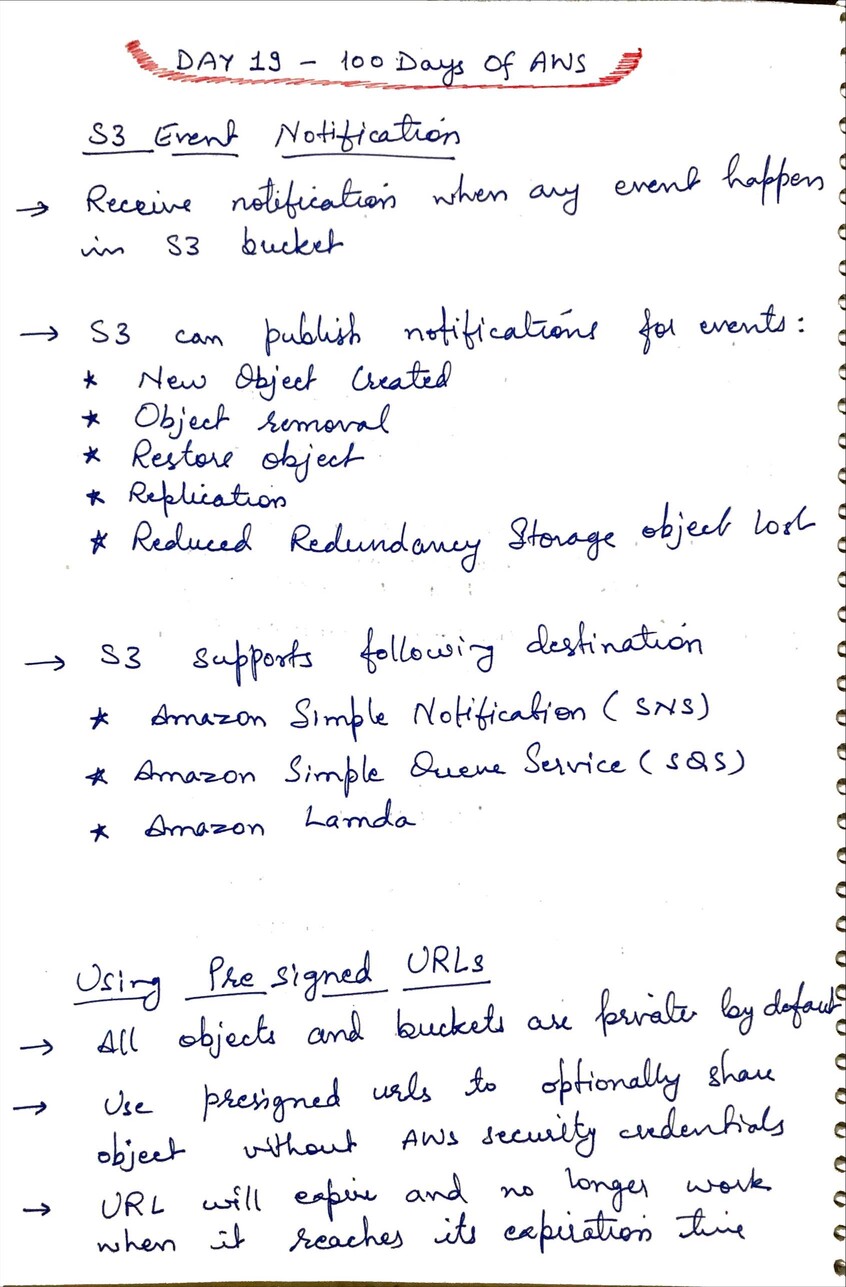 DAY 19 - 100 Days Of AWS
S3 Event Notification
→ Receive notification when any event happen
in S3 bucket
→ S3 can publish notifications for events:
* New Object Created
* Object removal
* Restore object
* Replication
* Reduced Redundancy Storage object lost
→ S3 supports following destination
* Amazon Simple Notification (SNS)
* Amazon Simple Queue Service (SQS)
* Amazon Lamda
Using Pre signed URLs
→ All objects and buckets are private by defaut
→ Use presigned urls to optionally share
object without AWS security credentials
→ URL will expire and no longer work
when it reaches its expiration time